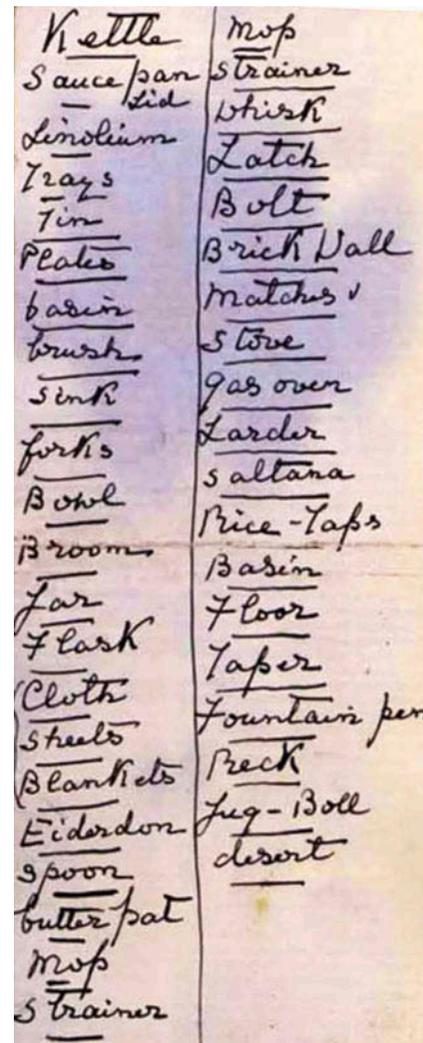 Kettle
Sauce pan
Lid
Linolium
Trays
Tin
Plates
basin
brush
Sink
forks
Bowl
Broom
Jar
Flask
Cloth
Sheets
Blankets
Eiderdon
Spoon
butter pat
Mop
Strainer
Mop
Strainer
Whisk
Latch
Bolt
Brick Wall
Matches
Stove
gas oven
Larder
Saltana
Rice - Taps
Basin
Floor
Taper
Fountain pen
Jug - Boll
desert